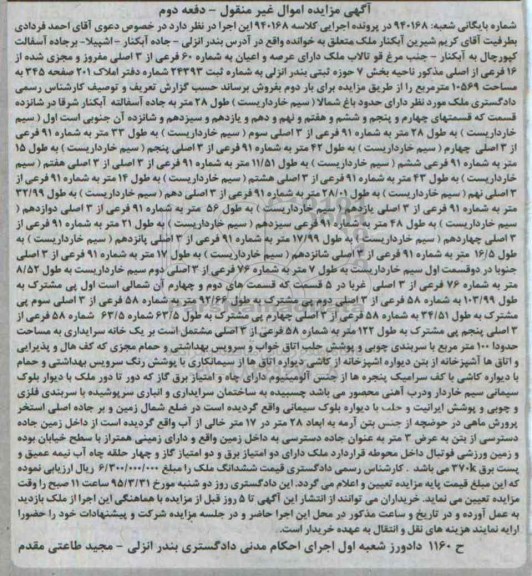 آگهی مزایده اموال غیر منقول - دفعه دوم
شماره بایگانی شعبه: ۹۴۰۱۶۸ در پرونده اجرایی کلاسه ۹۴۰۱۶۸ این اجرا در نظر دارد در خصوص دعوی آقای احمد فردادی
بطرفیت آقای کریم شیرین آبکنار ملک متعلق به خوانده واقع در آدرس بندر انزلی - جاده آبکنار - اشپیلا- برجاده آسفالت
کپورچال به آبکنار - جنب مرغ قو تالاب ملک دارای عرصه و اعیان به شماره ۶۰ فرعی از ۳ اصلی مفروز و مجزی شده از
۱۶ فرعی از اصلی مذکور ناحیه بخش ۷ حوزه ثبتی بندر انزلی به شماره ثبت ۲۴۳۹۳ شماره دفتر املاک ۲۰۱ صفحه ۳۴۵ به
مساحت ۱۰۵۶۹ مترمربع را از طریق مزایده برای بار دوم بفروش برساند حسب گزارش تعریف و توصیف کارشناس رسمی
دادگستری ملک مورد نظر دارای حدود باغ شمالا ( سیم خارداریست ) طول ۲۸ متر به جاده آسفالته آبکنار شرقا در شانزده
قسمت که قسمتهای چهارم و پنجم و ششم و هفتم و نهم و دهم و یازدهم و سیزدهم و شانزده آن جنوبی است اول ( سیم
خارداریست ) به طول ۲۸ متر به شماره ۹۱ فرعی از ۳ اصلی سوم ( سیم خارداریست ) به طول ۳۳ متر به شماره ۹۱ فرعی
از ۳ اصلی چهارم ( سیم خارداریست ) به طول ۴۲ متر به شماره ۹۱ فرعی از ۳ اصلی پنجم ( سیم خارداریست ) به طول ۱۵
متر به شماره ۹۱ فرعی ششم ( سیم خارداریست ) به طول ۱۱/۵۱ متر به شماره ۹۱ فرعی از ۳ اصلی هفتم ( سیم
خارداریست ) به طول ۴۳ متر به شماره ۹۱ فرعی از ۳ اصلی هشتم ( سیم خارداریست ) به طول ۱۴ متر به شماره ۹۱ فرعی از
۳ اصلی نهم ( سیم خارداریست ) به طول ۲۸/۰۱ متر به شماره ۹۱ فرعی از ۳ اصلی دهم ( سیم خارداریست ) به طول ۳۲/۹۹
متر به شماره ۹۱ فرعی از ۳ اصلی یازدهم ( سیم خارداریست ) به طول ۵۶ متر به شماره ۹۱ فرعی از ۳ اصلی دوازدهم (
سیم خارداریست ) به طول ۴۸ متر به شماره ۹۱ فرعی سیزدهم ( سیم خارداریست ) به طول ۲۱ متر به شماره ۹۱ فرعی از
۳ اصلی چهاردهم ( سیم خارداریست ) به طول ۱۷/۹۹ متر به شماره ۹۱ فرعی از ۳ اصلی پانزدهم ( سیم خارداریست ) به
طول ۱۶/۵ متر به شماره ۹۱ فرعی از ۳ اصلی شانزدهم ( سیم خارداریست ) به طول ۱۷ متر به شماره ۹۱ فرعی از ۳ اصلی
جنوبا در دوقسمت اول سیم خارداریست به طول ۷ متر به شماره ۷۶ فرعی از ۳ اصلی دوم سیم خارداریست به طول ۸/۵۲
متر به شماره ۷۶ فرعی از ۳ اصلی غربا در ۵ قسمت که قسمت های دوم و چهارم آن شمالی است اول پی مشترک به
طول ۱۰۳/۹۹ به شماره ۵۸ فرعی از ۳ اصلی دوم پی مشترک به طول ۹۲/۶۶ متر به شماره ۵۸ فرعی از ۳ اصلی سوم پی
مشترک به طول ۳۴/۵۱ به شماره ۵۸ فرعی از ۳ اصلی چهارم پی مشترک به طول ۶۳/۵ شماره ۶۳/۵ شماره ۵۸ فرعی از
۳ اصلی پنجم پی مشترک به طول ۱۲۲ متر به شماره ۵۸ فرعی از ۳ اصلی مشتمل است بر یک خانه سرایداری به مساحت
حدودا ۱۰۰ متر مربع با سربندی چوبی و پوشش حلب اتاق خواب و سرویس بهداشتی و حمام مجزی که کف هال و پذیرایی
و اتاق ها آشپزخانه از بتن دیواره اشپزخانه از کاشی دیواره اتاق ها از سیمانکاری با پوشش رنگ سرویس بهداشتی و حمام
با دیواره کاشی با کف سرامیک پنجره ها از جنس آلومینیوم دارای چاه و امتیاز برق گاز که دور تا دور ملک با دیوار بلوک
سیمانی سیم خاردار ودرب آهنی محصور می باشد چسبیده به ساختمان سرایداری و انباری سرپوشیده با سربندی فلزی
و چوبی و پوشش ایرانیت و حلب با دیواره بلوک سیمانی واقع گردیده است در ضلع شمال زمین و بر جاده اصلی استخر
پرورش ماهی در حوضچه از جنس بتن آرمه به ابعاد ۲۸ متر در ۱۷ متر خالی از آب واقع گردیده است از داخل زمین جاده
دسترسی از بتن به عرض ۳ متر به عنوان جاده دسترسی به داخل زمین واقع و دارای زمینی همتراز با سطح خیابان بوده
و زمین ورزشی فوتبال داخل محوطه قراردارد ملک دارای دو امتیاز برق و دو امتیاز گاز و چهار حلقه چاه آب نیمه عمیق و
پست برق ۳۷۰k می باشد . کارشناس رسمی دادگستری قیمت ششدانگ ملک را مبلغ ۶/۳۰۰/۰۰۰/۰۰۰ ریال ارزیابی نموده
که این مبلغ قیمت پایه مزایده تعیین و اعلام می گردد. این دادگستری روز دو شنبه مورخ ۹۵/۳/۳۱ ساعت ۱۱ صبح را وقت
مزایده تعیین می نماید. خریداران می توانند از انتشار این آگهی تا ۵ روز قبل از مزایده با هماهنگی این اجرا از ملک بازدید
به عمل آورده و در تاریخ و ساعت مذکور در محل این اجرا حاضر و در جلسه مزایده شرکت و پیشنهادات خود را حضورا
ارایه نمایند هزینه های نقل و انتقال به عهده خریدار است.
ح ۱۱۶۰ دادورز شعبه اول اجرای احکام مدنی دادگستری بندر انزلی - مجید طاعتی مقدم